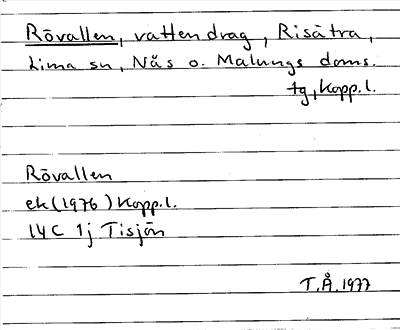 Rövallen, vattendrag, Risätra,
Lima sn, Nås o. Malungs doms.
tg, Kopp.l.
Rövallen
ek (1976) Kopp.l.
14C 1j Tisjön
T.Å. 1977